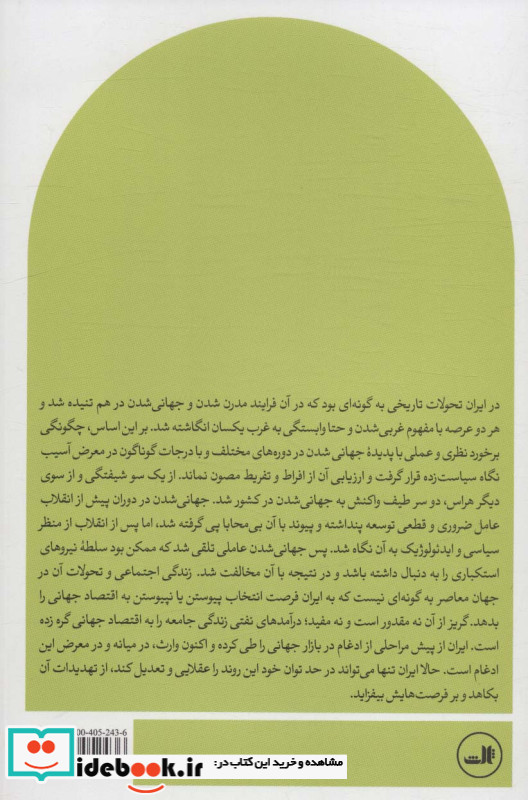 در ایران تحولات تاریخی به گونه‌ای بود که در آن فرایند مدرن شدن و جهانی‌شدن در هم تنیده شد و
هر دو عرصه با مفهوم غربی‌شدن و حتا وابستگی به غرب یکسان انگاشته شد. بر این اساس، چگونگی
برخورد نظری و عملی با پدیدهٔ جهانی شدن در دوره‌های مختلف و با درجات گوناگون در معرض آسیب
نگاه سیاست‌زده قرار گرفت و ارزیابی آن از افراط و تفریط مصون نماند. از یک سو شیفتگی و از سوی
دیگر هراس، دو سر طیف واکنش به جهانی‌شدن در کشور شد. جهانی‌شدن در دوران پیش از انقلاب
عامل ضروری و قطعی توسعه پنداشته و پیوند با آن بی‌محابا پی گرفته شد، اما پس از انقلاب از منظر
سیاسی و ایدئولوژیک به آن نگاه شد. پس جهانی‌شدن عاملی تلقی شد که ممکن بود سلطهٔ نیروهای
استکباری را به دنبال داشته باشد و در نتیجه با آن مخالفت شد. زندگی اجتماعی و تحولات آن در
جهان معاصر به گونه‌ای نیست که به ایران فرصت انتخاب پیوستن یا نپیوستن به اقتصاد جهانی را
بدهد. گریز از آن نه مقدور است و نه مفید؛ درآمدهای نفتی زندگی جامعه را به اقتصاد جهانی گره زده
است. ایران از پیش مراحلی از ادغام در بازار جهانی را طی کرده و اکنون وارث، در میانه و در معرض این
ادغام است. حالا ایران تنها می‌تواند در حد توان خود این روند را عقلایی و تعدیل کند، از تهدیدات آن
بکاهد و بر فرصت‌هایش بیفزاید.
00-405-243-6
ثالث
مشاهده و خرید این کتاب در:
idebook.ir